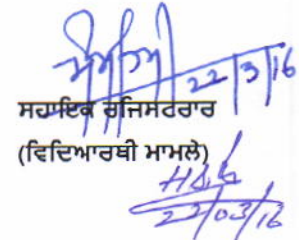 22/3/16
ਸਹਾਇਕ ਰਜਿਸਟਰਾਰ
(ਵਿਦਿਆਰਥੀ ਮਾਮਲੇ)
22/03/16